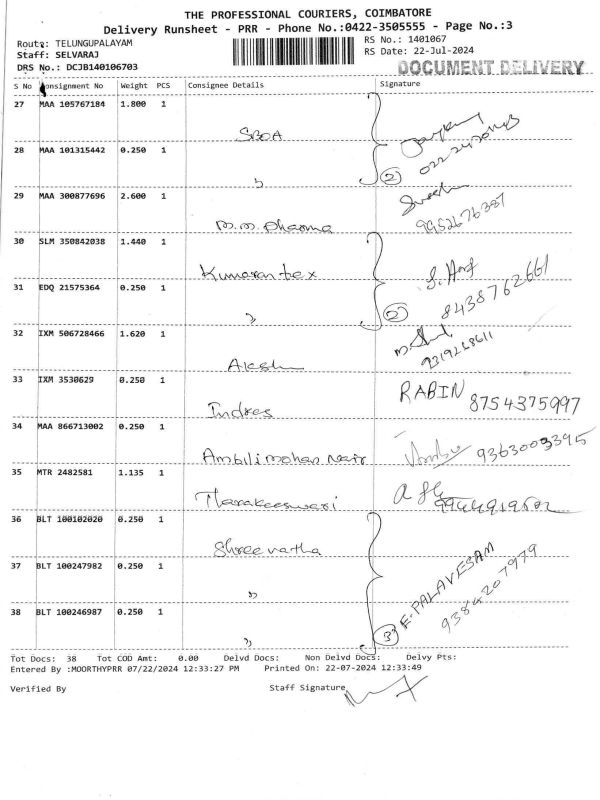 THE PROFESSIONAL COURIERS, COIMBATORE
Delivery Runsheet - PRR - Phone No.:0422-3505555 - Page No.:3
Route: TELUNGUPALAYAM
RS No.: 1401067
Staff: SELVARAJ
RS Date: 22-Jul-2024
DRS No.: DCJB140106703
DOCUMENT DELIVERY
S No Consignment No Weight PCS Consignee Details Signature
27 MAA 105767184 1.800 1
SBOA
28 MAA 101315442 0.250 1
"
2
29 MAA 300877696 2.600 1
Suresh
M.M. Pharma
9952676387
30 SLM 350842038 1.440 1
Kumaran tex
31 EDQ 21575364 0.250 1
8438762661
"
2
32 IXM 506728466 1.620 1
Akash
33 IXM 3530629 0.250 1
RABIN 8754375997
Indres
34 MAA 866713002 0.250 1
Ambili mohan Nair
9363003395
35 MTR 2482581 1.135 1
Tharakeeswari
36 BLT 100102020 0.250 1
Shreevatha
37 BLT 100247982 0.250 1
"
E. PALAVESAM
9384207979
38 BLT 100246987 0.250 1
"
3
Tot Docs: 38 Tot COD Amt: 0.00 Delvd Docs: Non Delvd Docs: Delvy Pts:
Entered By :MOORTHYPRR 07/22/2024 12:33:27 PM Printed On: 22-07-2024 12:33:49
Verified By Staff Signature